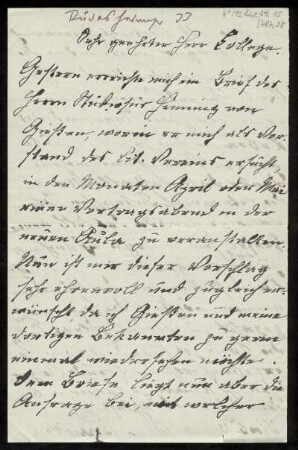 Rüdesheimer 
Sehr geehrter Herr College.
Gestern erreichte mich ein Brief des
Herrn Studiosus Henning von
Gießen, worin er mich als Vor-
stand des lit. Vereins ersucht
in den Monaten April oder Mai
einen Vortragsabend in der
neuen Aula zu veranstalten.
Nun ist mir dieser Vorschlag
sehr ehrenvoll und zugleich er-
wünscht da ich Gießen und meine
dortigen Bekannten zu gerne
einmal wiedersehen möchte.
Dem Briefe liegt nun aber die
Anfrage bei, mit welcher